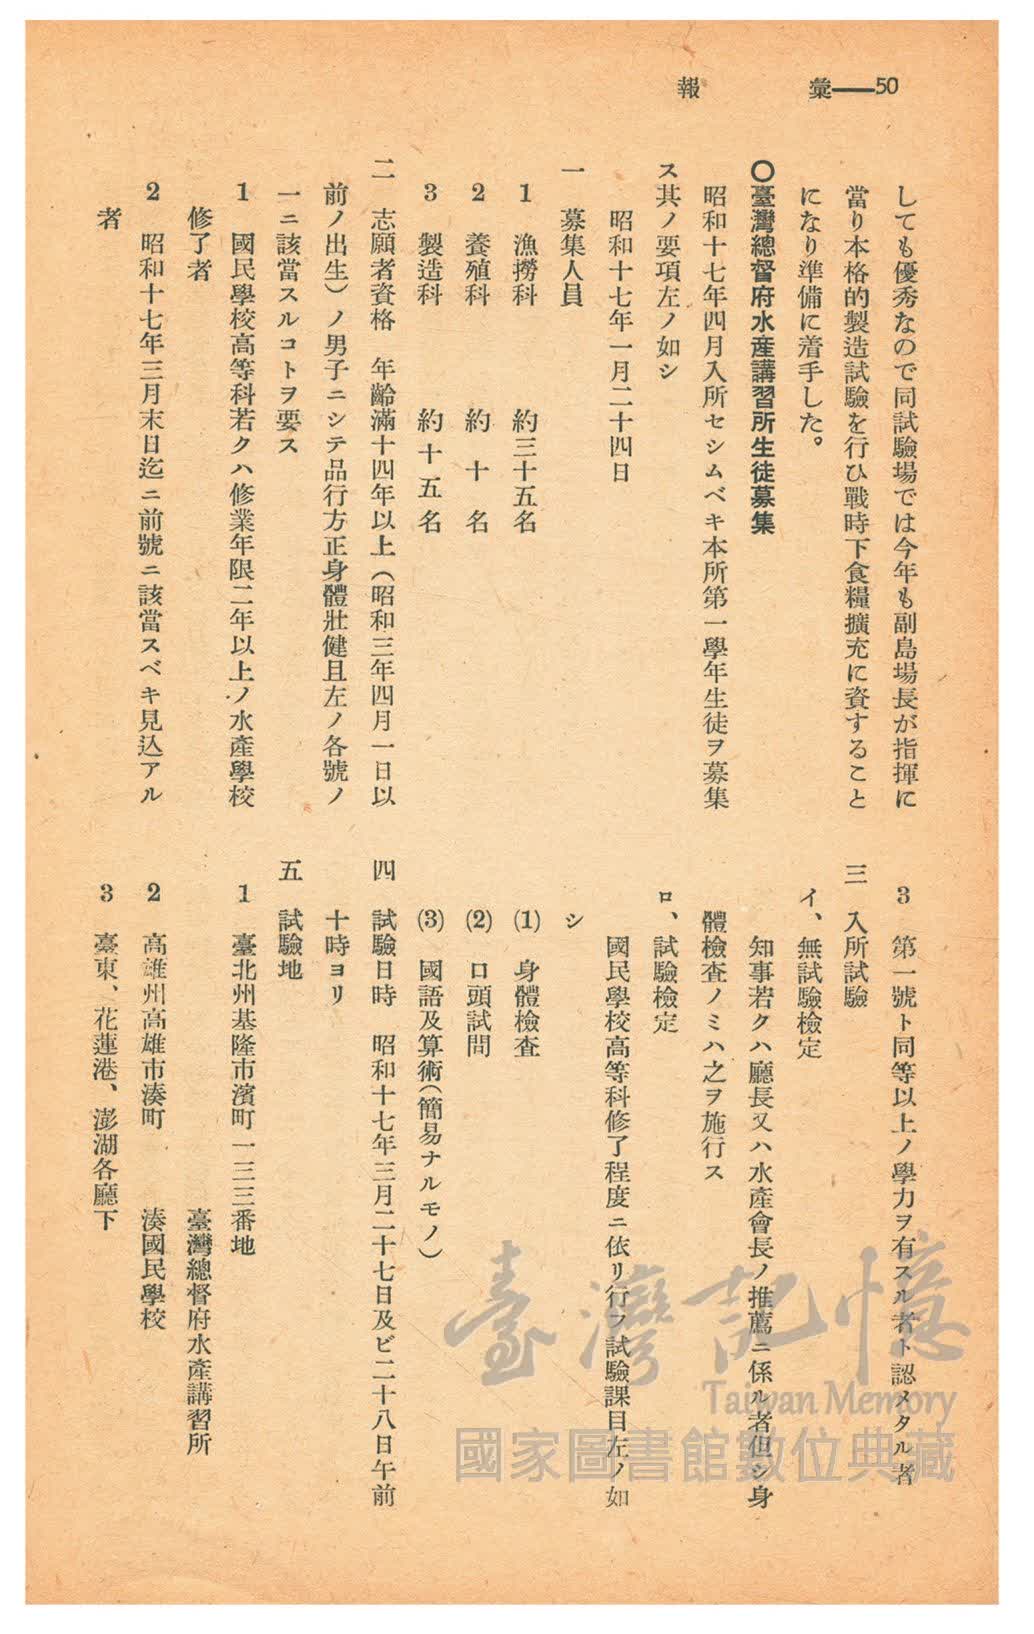 彙報——50
しても優秀なので同試驗場では今年も副島場長が指揮に
當り本格的製造試驗を行ひ戰時下食糧擴充に資すること
になり準備に着手した。
〇臺灣總督府水產講習所生徒募集
昭和十七年四月入所セシムベキ本所第一學年生徒ヲ募集
ス其ノ要項左ノ如シ
昭和十七年一月二十四日
一 募集人員
1 漁撈科 約三十五名
2 養殖科 約十名
3 製造科 約十五名
二 志願者資格 年齡滿十四年以上(昭和三年四月一日以
前ノ出生)ノ男子ニシテ品行方正身體壯健且左ノ各號ノ
一ニ該當スルコトヲ要ス
1 國民學校高等科若クハ修業年限二年以上ノ水產學校
修了者
2 昭和十七年三月末日迄ニ前號ニ該當スベキ見込アル
者
3 第一號ト同等以上ノ學力ヲ有スル者ト認メタル者
三 入所試驗
イ、無試驗檢定
知事若クハ廳長又ハ水產會長ノ推薦ニ係ル者但シ身
體檢査ノミハ之ヲ施行ス
ロ、試驗檢定
國民學校高等科修了程度ニ依リ行フ試驗課目左ノ如
シ
(1) 身體檢査
(2) 口頭試問
(3) 國語及算術(簡易ナルモノ)
四 試驗日時 昭和十七年三月二十七日及ビ二十八日午前
十時ヨリ
五 試驗地
1 臺北州基隆市濱町一三三番地
臺灣總督府水產講習所
2 高雄州高雄市湊町 湊國民學校
3 臺東、花蓮港、澎湖各廳下
臺灣記憶
Taiwan Memory
國家圖書館數位典藏